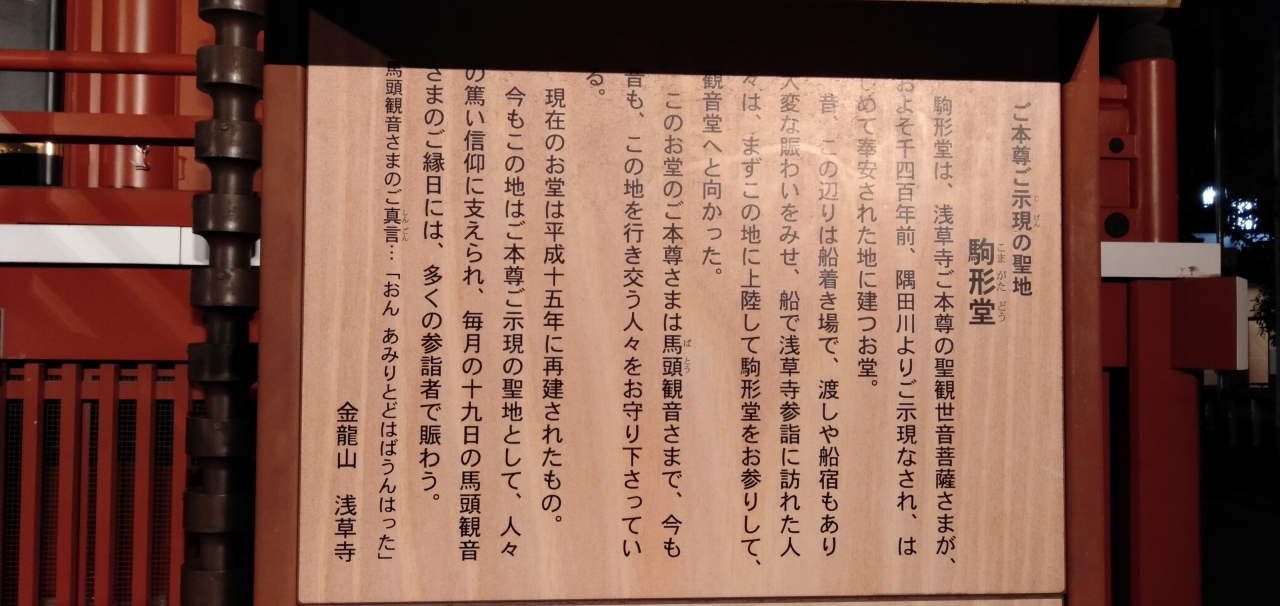 ご本尊ご示現の聖地
じげん
駒形堂
こまがたどう
駒形堂は、浅草寺ご本尊の聖観世音菩薩さまが、
およそ千四百年前、隅田川よりご示現なされ、は
じめて奉安された地に建つお堂。
昔、この辺りは船着き場で、渡しや船宿もあり
大変な賑わいをみせ、船で浅草寺参詣に訪れた人
々は、まずこの地に上陸して駒形堂をお参りして、
観音堂へと向かった。
このお堂のご本尊さまは馬頭観音さまで、今も
ばとう
昔も、この地を行き交う人々をお守り下さってい
る。
現在のお堂は平成十五年に再建されたもの。
今もこの地はご本尊ご示現の聖地として、人々
の篤い信仰に支えられ、毎月の十九日の馬頭観音
さまのご縁日には、多くの参詣者で賑わう。
馬頭観音さまのご真言…「おん あみりとどはばうんはった」
しんごん
金龍山 浅草寺